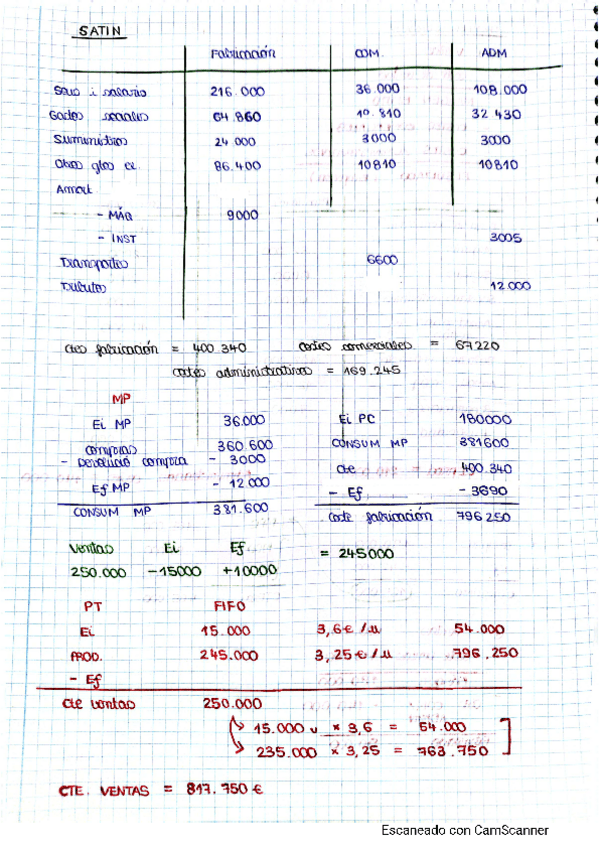 SATIN
Fabricación COM. ADM
Sous i salario 216.000 36.000 108.000
Gastos sociales 64.860 10.810 32 430
Suministros 24.000 3000 3000
Otros gtos ex. 86.400 10810 10810
Amort
- MÁQ 9000
- INST 3005
Transportes 6600
Tributos 12.000
ctes fabricación = 400.340 costes comerciales = 67220
costes administrativos = 169.245
MP
Ei MP 36.000 Ei PC 180000
compras 360.600 CONSUM MP 381600
- Devolució compra - 3000 cte 400.340
- Ef MP - 12.000 - Ef - 3690
CONSUM MP 381.600 coste fabricación 796250
Ventas Ei Ef = 245000
250.000 -15000 +10000
PT FIFO
Ei 15.000 3,6€/u 54.000
PROD. 245.000 3,25€/u 796.250
- Ef
cte ventas 250.000
15.000 u × 3,6 = 54.000
235.000 × 3,25 = 763.750
CTE. VENTAS = 817.750 €
Escaneado con CamScanner